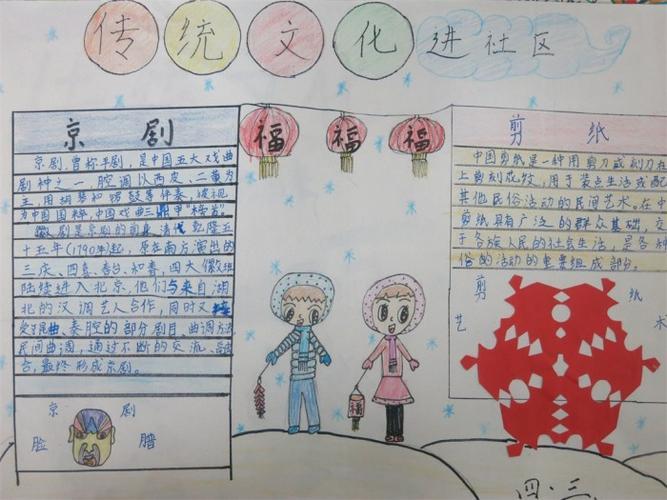 传统文化进社区
京剧
京剧,曾称平剧,是中国五大戏曲
剧种之一,腔调以西皮、二黄为
主,用胡琴和锣鼓等伴奏,被视
为中国国粹,中国戏曲三鼎甲"榜首"。
徽剧是京剧的前身。清代乾隆五
十五年(1790年)起,原在南方演出的
三庆、四喜、春台、和春,四大徽班
陆续进入北京,他们与来自湖
北的汉调艺人合作,同时又接
受了昆曲、秦腔的部分剧目、曲调方法
民间曲调,通过不断的交流、融
合,最终形成京剧。
京剧
脸腊
福
福
福
福
剪纸
中国剪纸是一种用剪刀或刻刀在
上剪刻成纹,用于装点生活或配
其他民俗活动的民间艺术。在中
剪纸具有广泛的群众基础,交
于各族人民的社会生活,是各种
俗的活动的重要组成部分。
剪纸
艺术
四.三